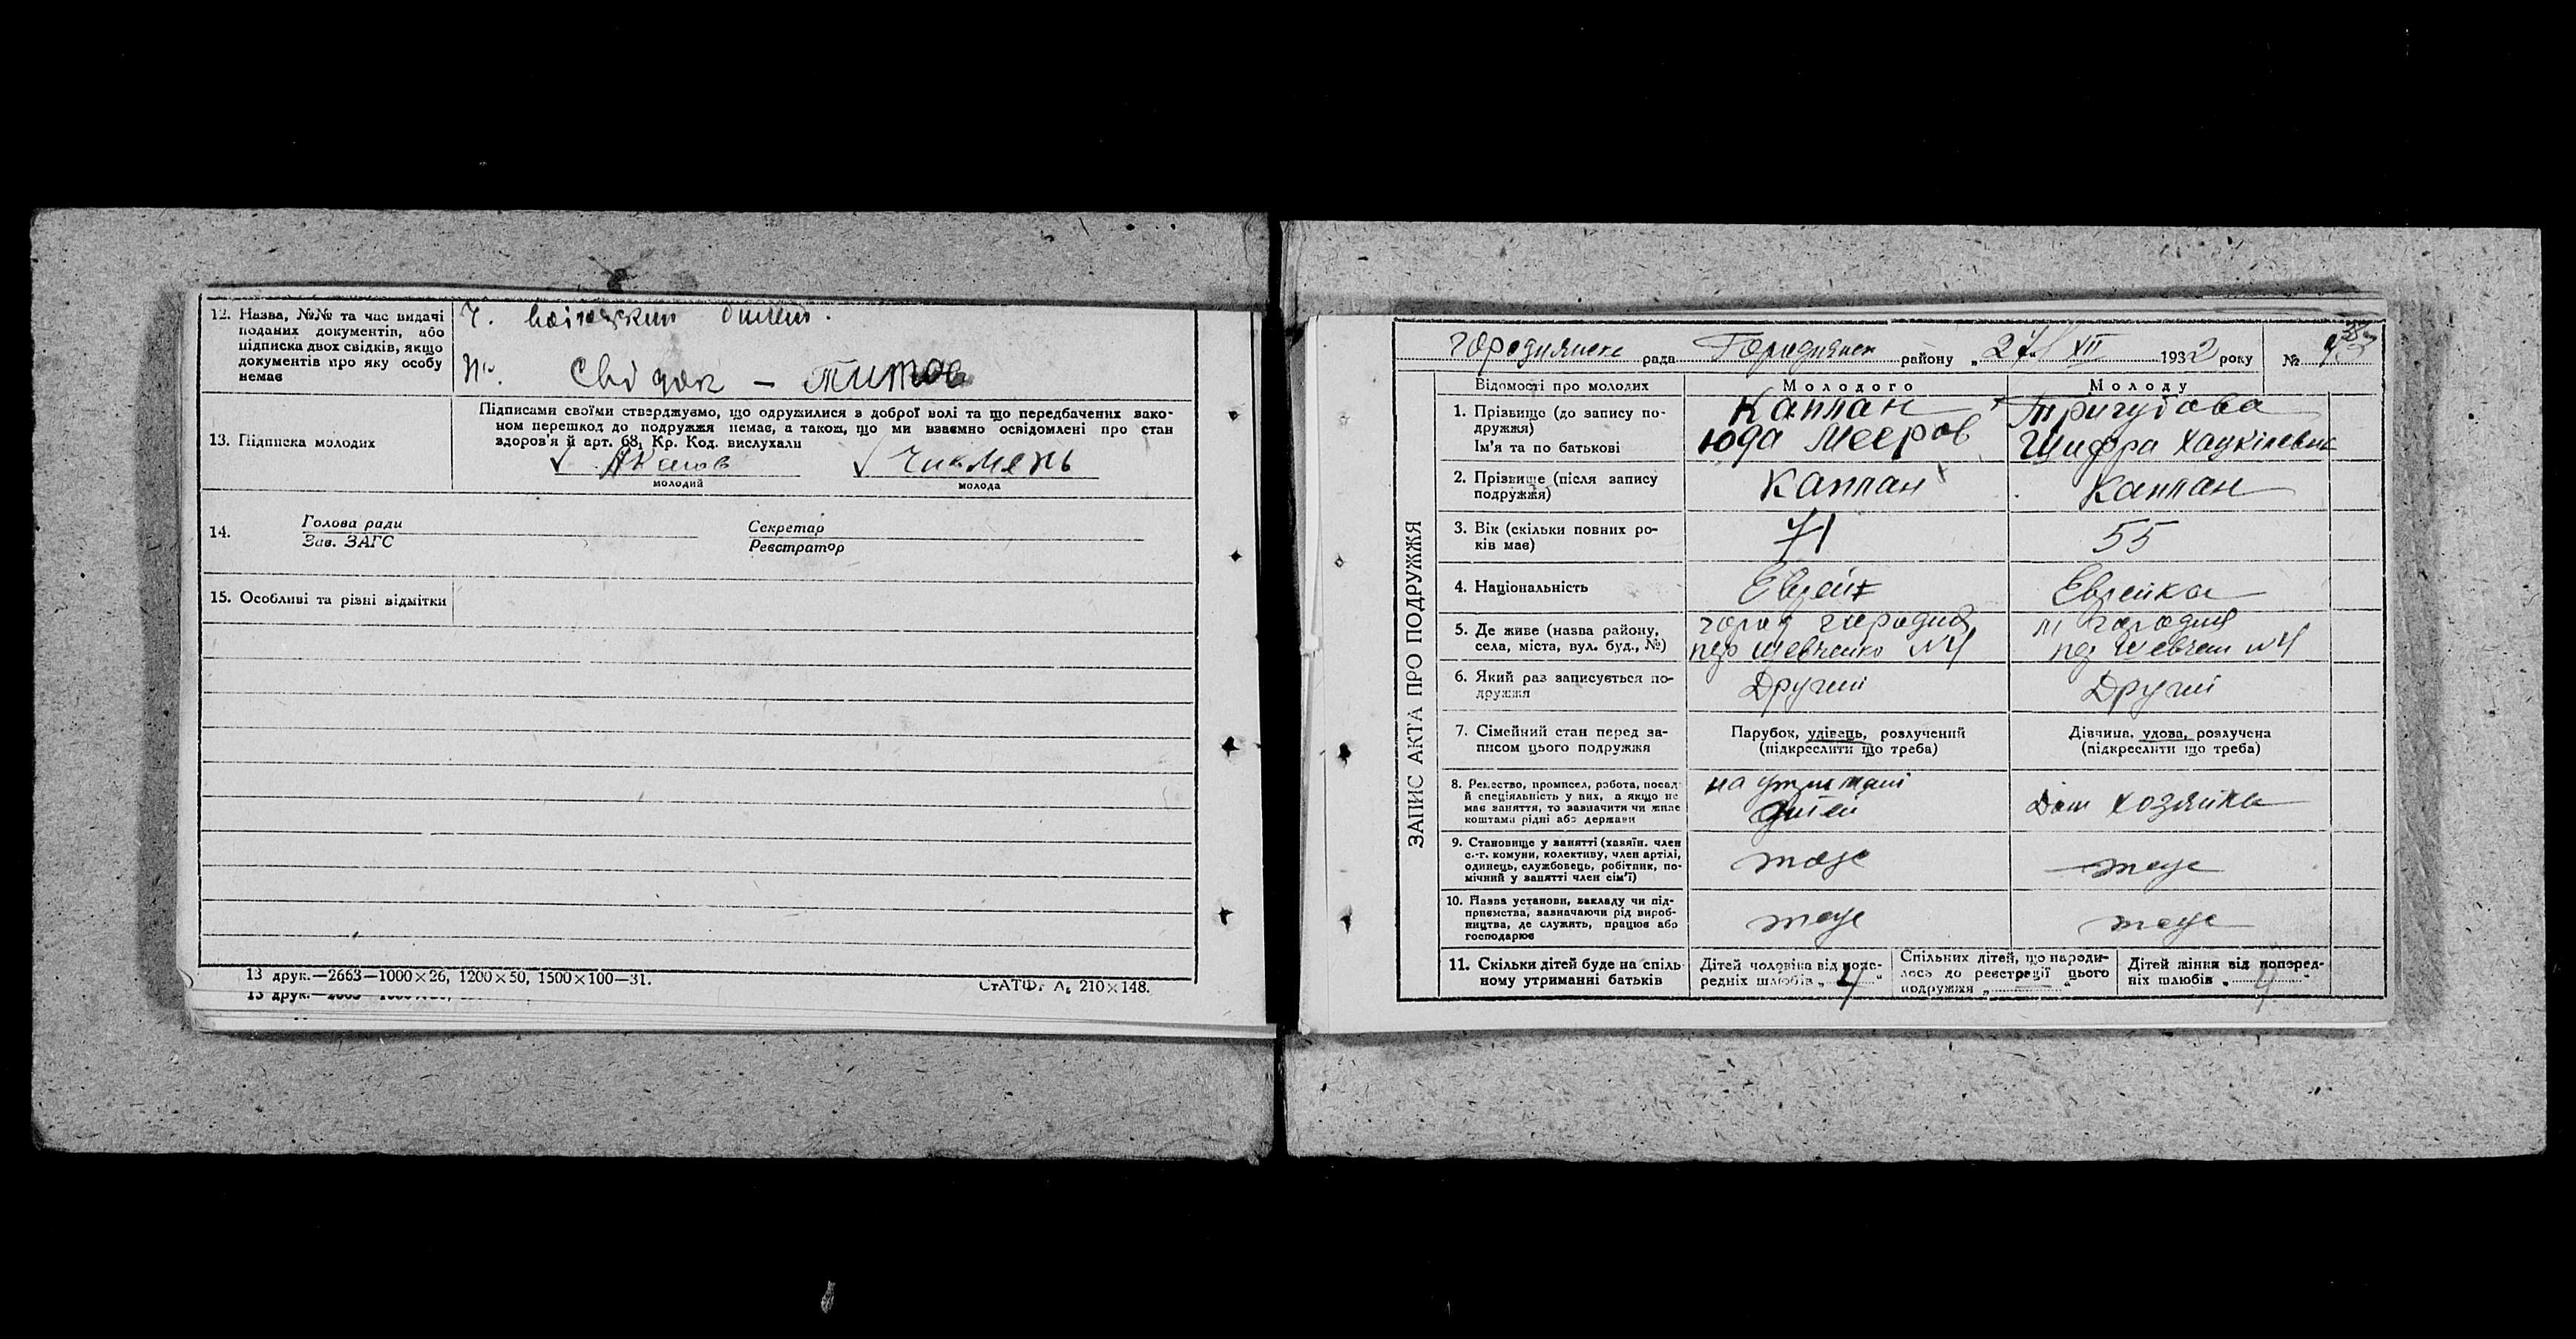 12. Назва, №№ та час видачі
поданих документів, або
підписка двох свідків, якщо
документів про яку особу
немає
Ч.
Свідок – Титов
13. Підписка молодих
Підписами своїми стверджуємо, що одружилися з доброї волі та що передбачених зако-
ном перешкод до подружжя немає, а також, що ми взаємно освідомлені про стан
здоров'я й арт. 68, Кр. Код. вислухали
молодий
молода
14.
Голова ради
Зав. ЗАГС
Секретар
Реєстратор
15. Особливі та різні відмітки
13 друк.—2663—1000×26, 1200×50, 1500×100—31.
210×148.
ЗАПИС АКТА ПРО ПОДРУЖЖЯ
Городнянськ рада Городнянськ району „27" XII 1932 року №
Відомості про молодих
Молодого
Молоду
1. Прізвище (до запису по-
дружжя)
Ім'я та по батькові
Каплан
Юда Мееров
Тригубова
Цифра Хацкілевна
2. Прізвище (після запису
подружжя)
Каплан
Каплан
3. Вік (скільки повних ро-
ків має)
71
55
4. Національність
Еврей
Еврейка
5. Де живе (назва району,
села, міста, вул. буд., №)
город Городня
Шевченко №4
м Городня
Шевчен №4
6. Який раз записується по-
дружжя
Другий
Другий
7. Сімейний стан перед за-
писом цього подружжя
Парубок, удівець, розлучений
(підкреслити що треба)
Дівчина, удова, розлучена
(підкреслити що треба)
8. Ремество, промисел, робота, посад
й спеціальність у них, а якщо не
має заняття, то зазначити чи живе
коштами рідні або держави
на утримані
дітей
Дом хозяйка
9. Становище у занятті (хазяїн, член
с.-г. комуни, колективу, член артілі,
одинець, службовець, робітник, по-
мічний у занятті член сім'ї)
тоже
тоже
10. Назва установи, закладу чи під-
приємства, зазначаючи рід вироб-
ництва, де служить, працює або
господарює
тоже
тоже
11. Скільки дітей буде на спіль-
ному утриманні батьків
Дітей чоловіка від попе-
редніх шлюбів „ "
Спільних дітей, що народи-
лось до реєстрації цього
подружжя „ — "
Дітей жінки від поперед-
ніх шлюбів „ "